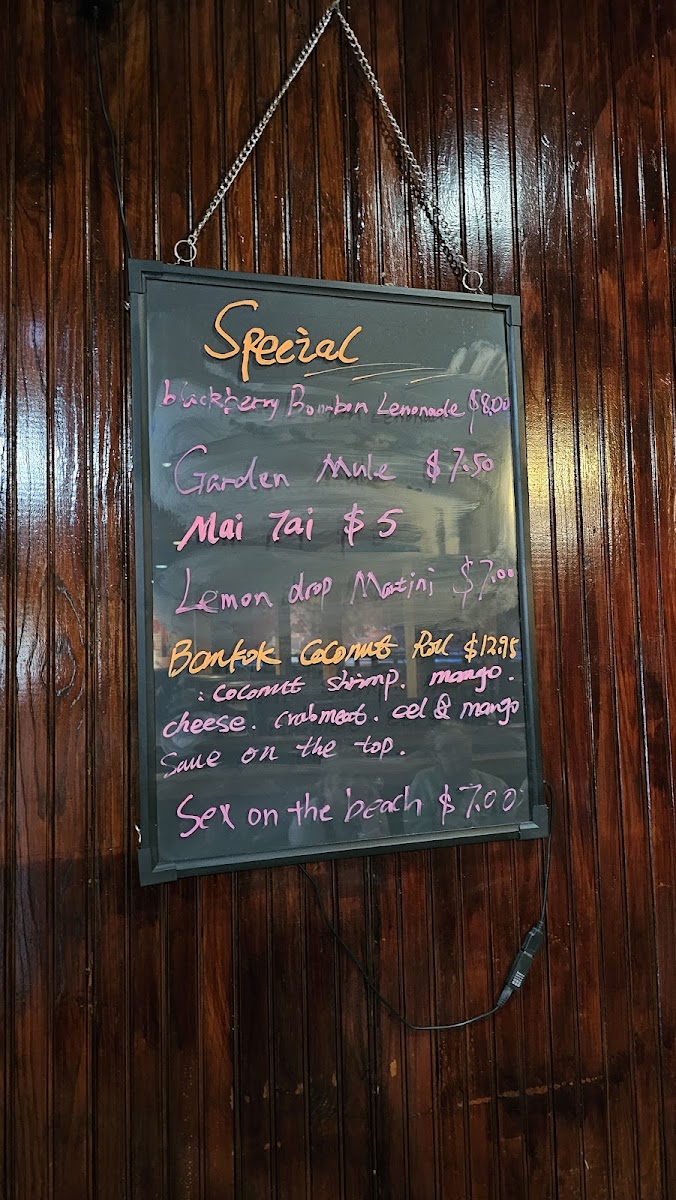 Special
blackberry Bourbon Lemonade $8.00
Garden Mule $7.50
Mai Tai $5
Lemon drop Matini $7.00
Bankok Coconut Roll $12.95
: Coconut shrimp. mango.
cheese. Crabmeat. eel & mango
Sauce on the top.
Sex on the beach $7.00